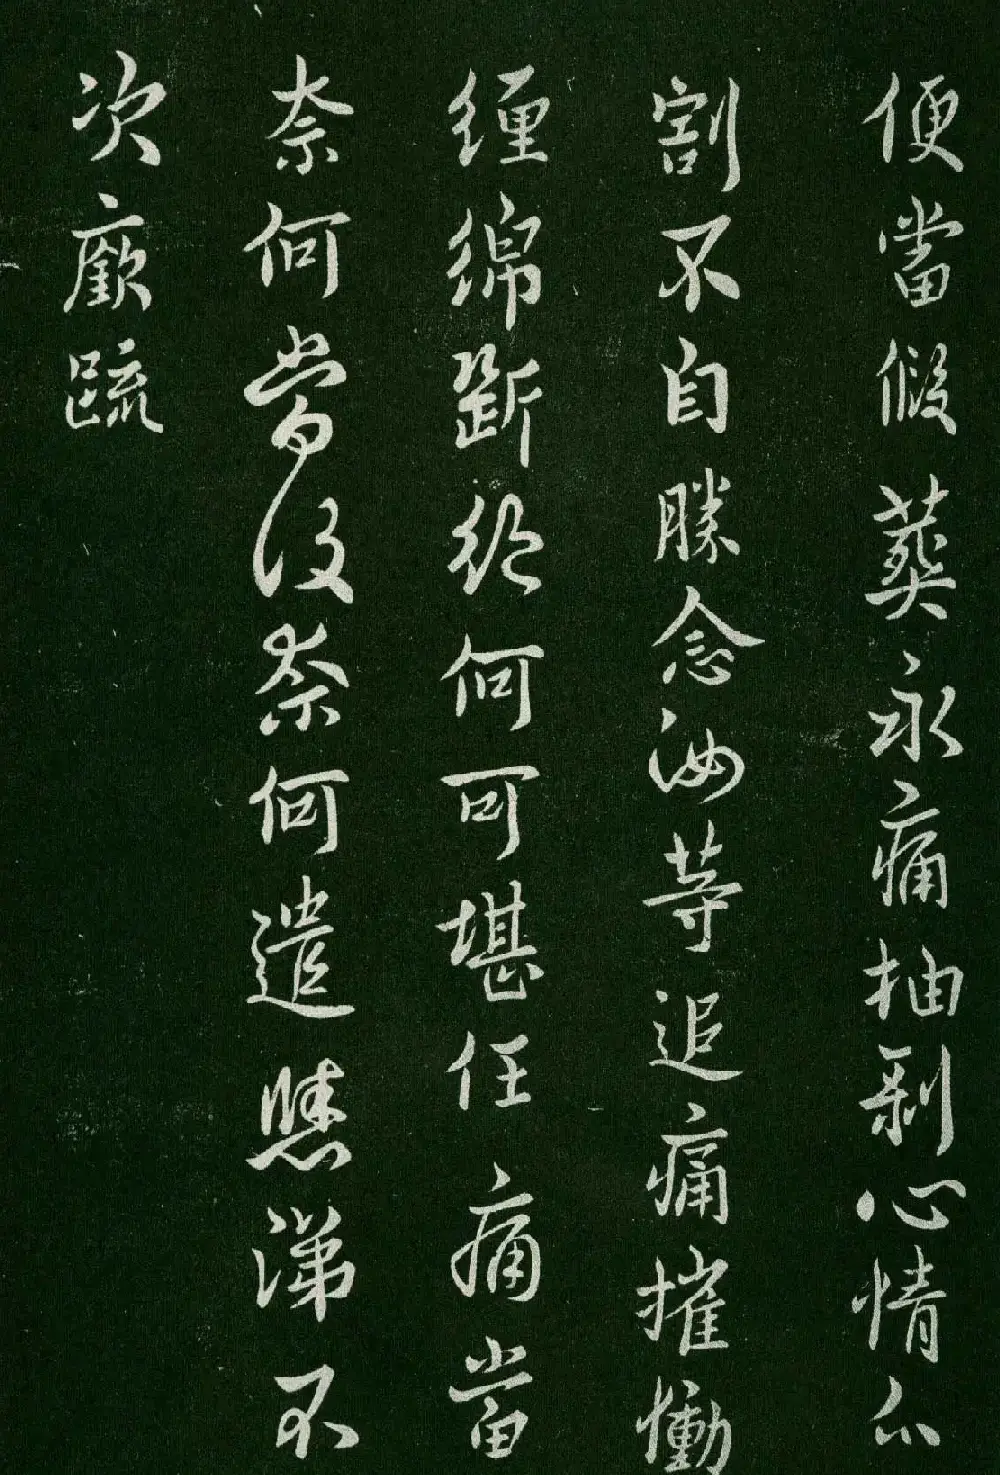 便當假葬永痛抽剝心情分
割不自勝念汝等追痛摧慟
纏綿斷絕何可堪任痛當
奈何當復奈何遣涕不
次廞疏